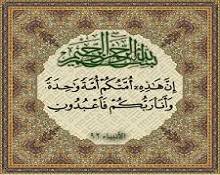 بسم الله الرحمن الرحيم
إِنَّ هَٰذِهِۦٓ أُمَّتُكُمْ أُمَّةً وَٰحِدَةً
وَأَنَا۠ رَبُّكُمْ فَٱعْبُدُونِ
الأنبياء ٩٢